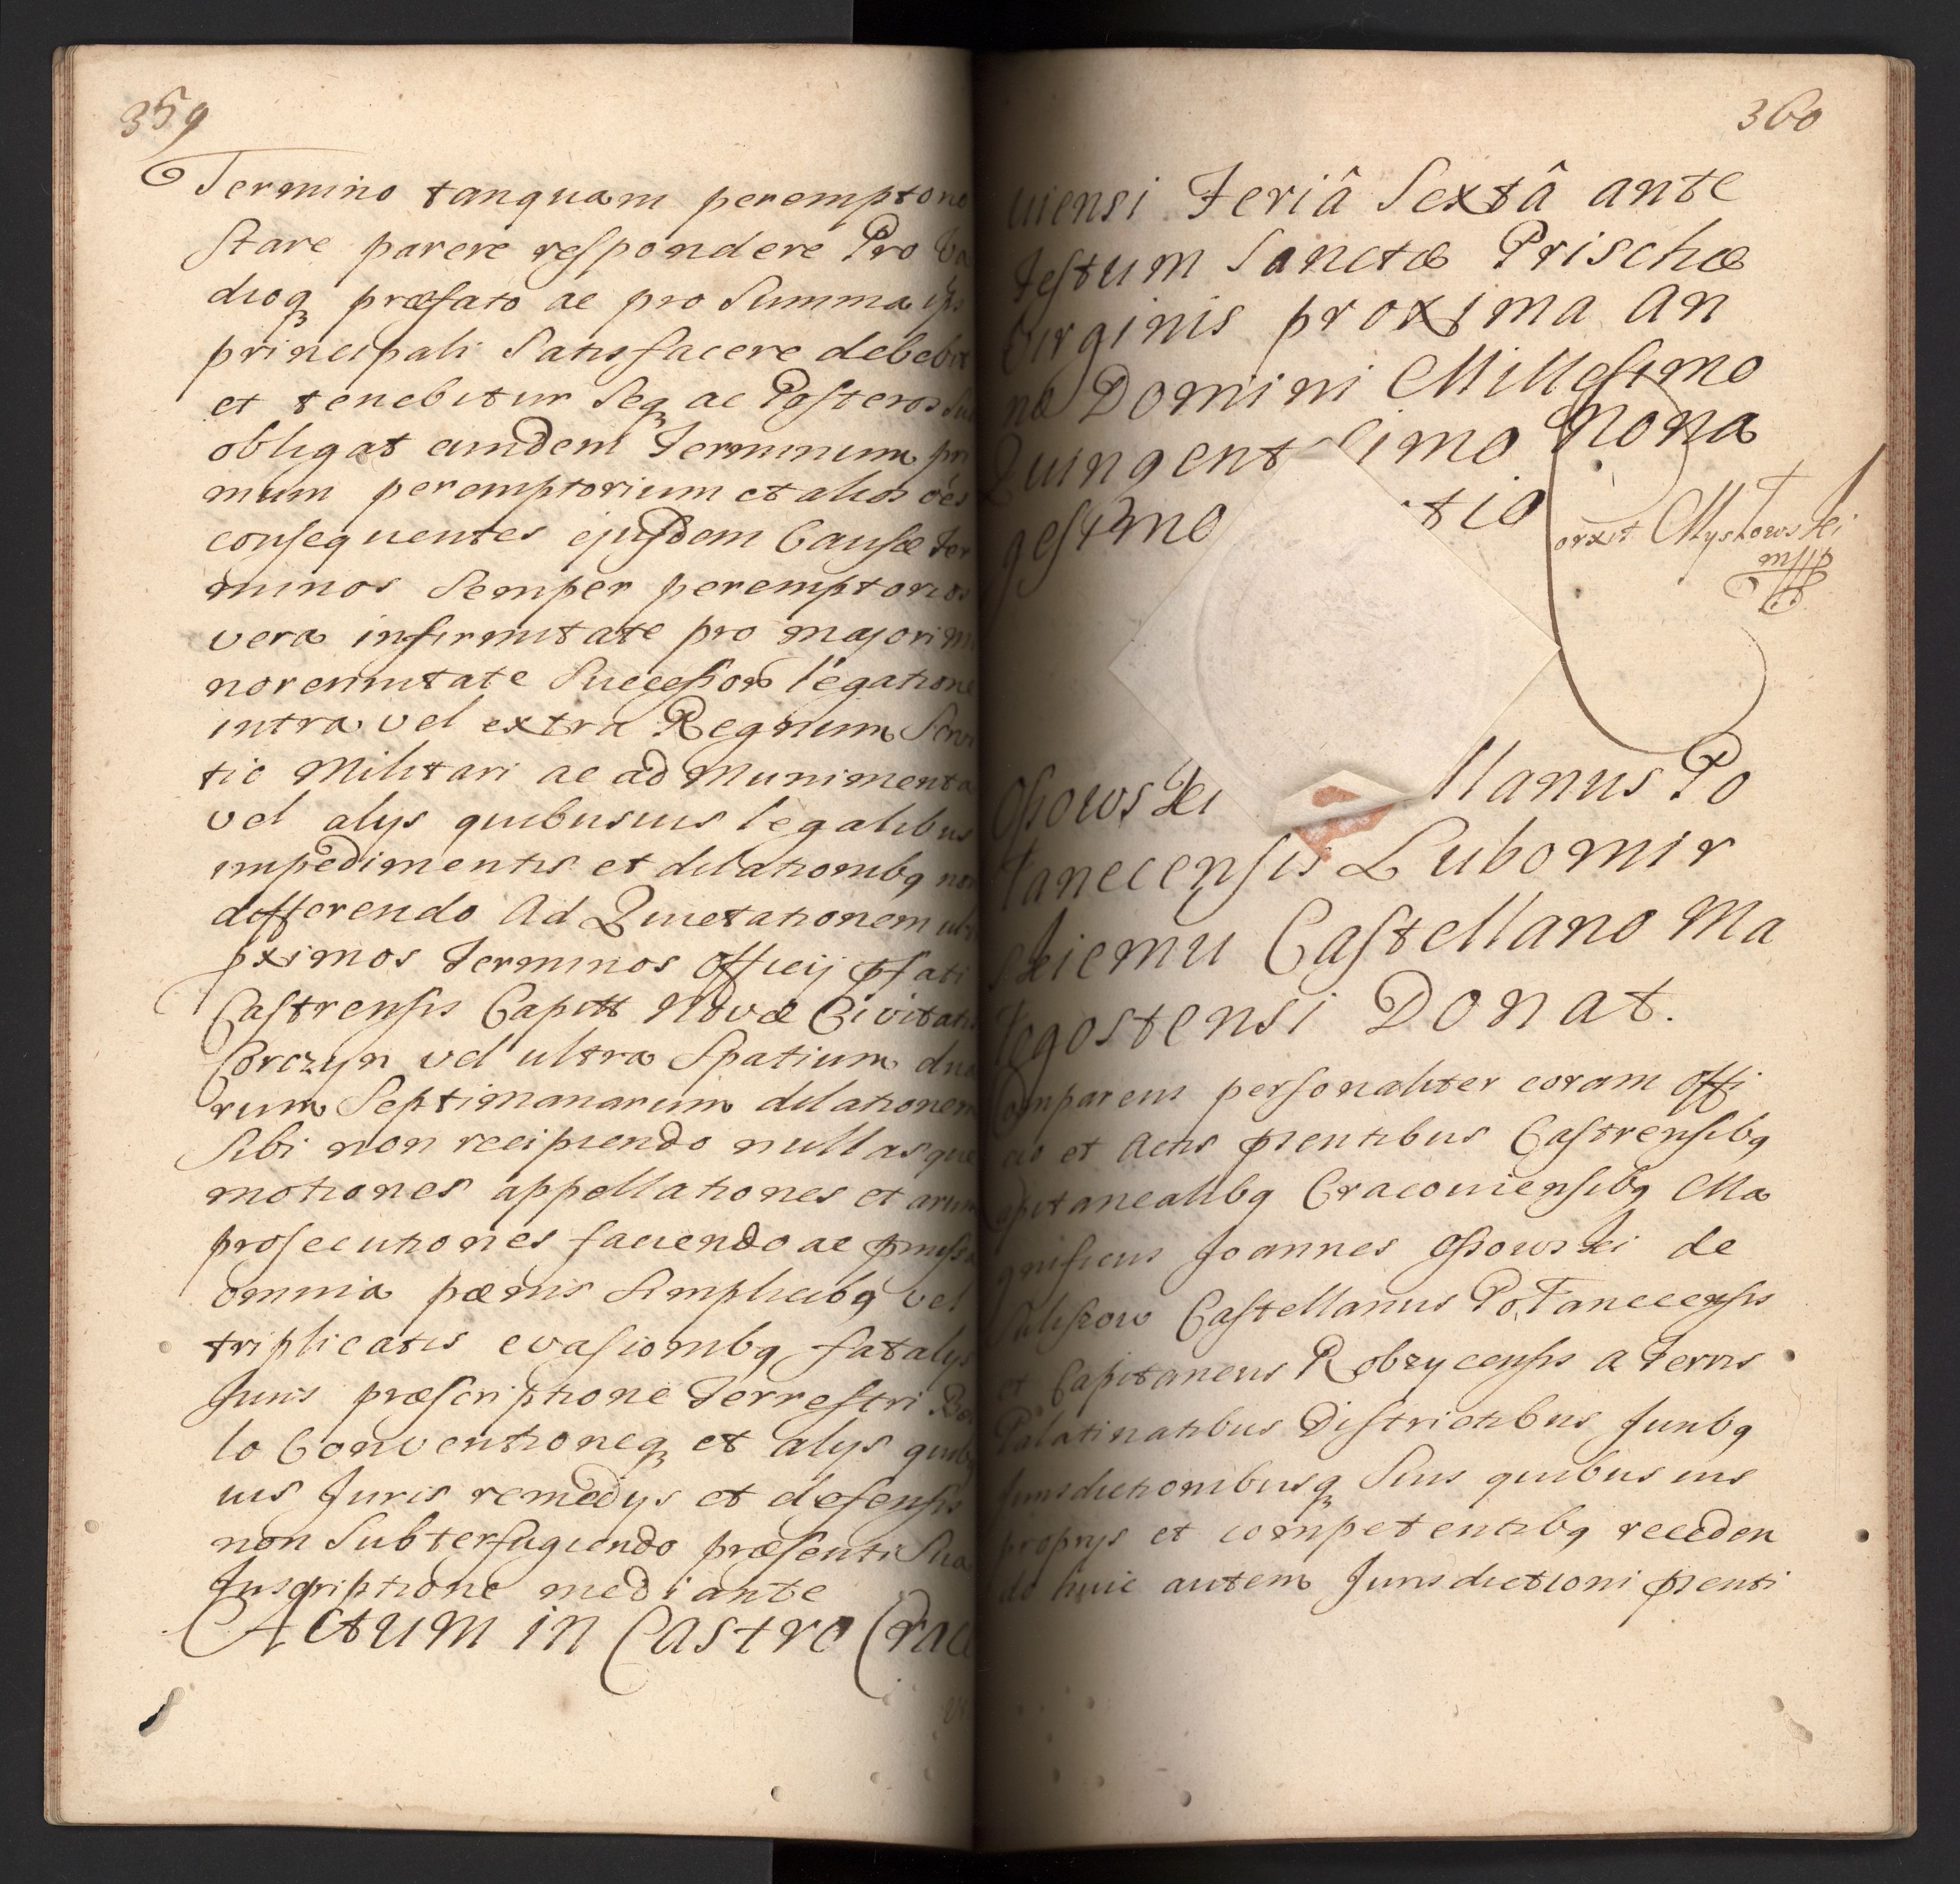 359
Termino tanquam peremptorio
stare parere respondere Pro Va
dioq præfato ac pro Summa
principali Satisfacere debebit
et tenebitur Seq ac Posteros
obligat eundem Terminum pri
mum peremptorium et alios oes
consequentes ejusdem Causæ Ter
minos Semper peremptorios
vera infirmitate pro majori mi
norennitate Successor legatione
intra vel extra Regnum Servi
tio Militari ac ad Munimenta
vel alys quibusuis legalibus
impedimentis et dilationibq non
differendo Ad Quietationem
pximos Terminos Officij pfati
Castrensis Capitt Novæ Civitatis
Corczyn vel ultra Spatium dua
rum Septimanarum dilationem
Sibi non recipiendo nullasque
motiones appellationes et arum
prosecutiones faciendo ac pmissa
omnia pœnis Simplicibq vel
triplicatis evasionibq fatalys
Juris præscriptione Terrestri Bel
lo Conventioneq et alys quibq
uis Juris remedys et defensis
non Subterfugiendo præsenti Sua
Inscriptione mediante
Actum in Castro Craco
360
uiensi Feriâ Sextâ ante
Festum Sanctæ Prischæ
Virginis proxima An
no Domini Millesimo
Quingent simo Nona
gesimo tio
orxit Myskowski
mpp
Ossowski llanus Po
łanecensis Lubomir
skiemu Castellano Ma
łogostensi Donat.
Comparens personaliter coram offi
cio et Actis pntibus Castrensibq
Capitanealibq Cracouiensibq Ma
gnificus Joannes Ossowski de
Castellanus Połanecensis
et Capitaneus Robzycensis a Terris
Palatinatibus Districtibus Juribq
Jurisdictionibusq Suis quibus uis
proprys et competentibq receden
do huic autem Jurisdictioni pnti